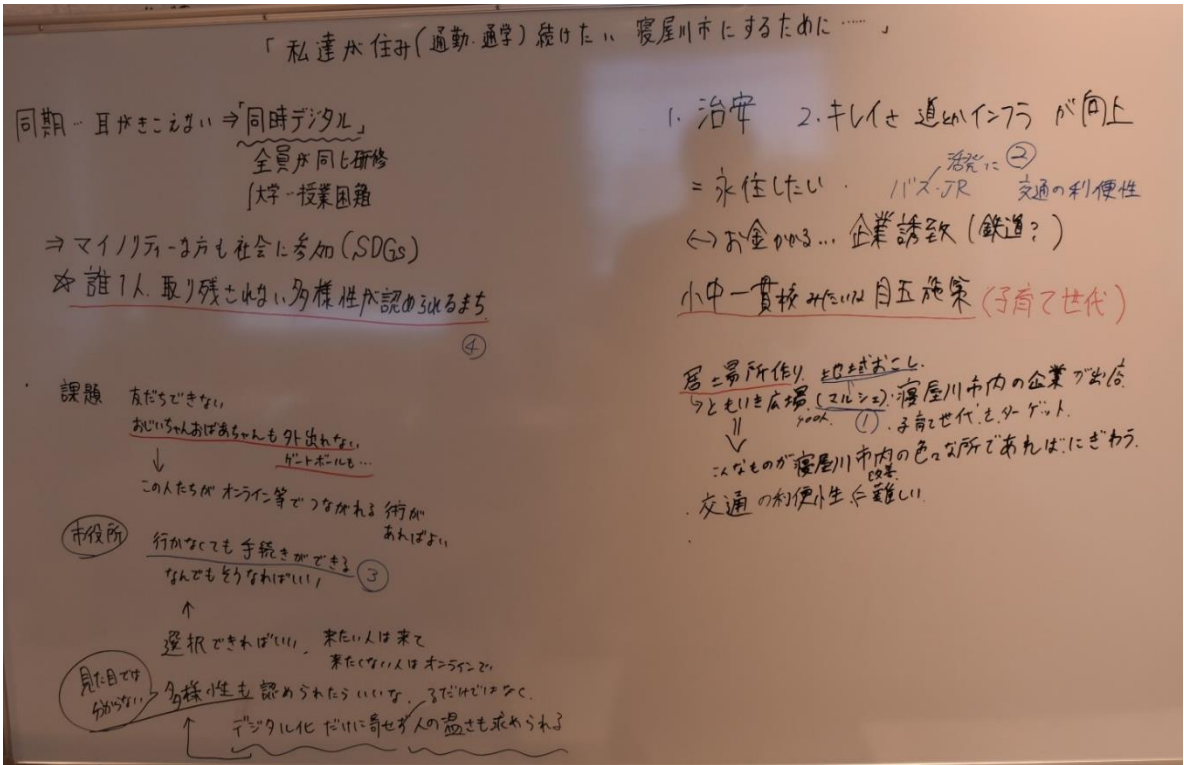 「私達が住み(通勤・通学)続けたい 寝屋川市にするために……」
同期‥耳がきこえない⇒「同時デジタル」
全員が同じ研修
大学‥授業困難
⇒マイノリティーな方も社会に参加(SDGs)
☆誰1人取り残されない多様性が認められるまち
④
・課題 友だちできない
おじいちゃんおばあちゃんも外出れない
ゲートボールも…
↓
この人たちがオンライン等でつながれる術が
あればよい
市役所 行かなくても手続きができる
なんでもそうなればいい ③
↑
選択できればいい、来たい人は来て
来たくない人はオンラインで
見た目では
分からない
多様性も認められたらいいな、るだけではなく、
デジタル化だけに寄せず人の温さも求められる
1.治安 2.キレイさ 道とかインフラ が向上
活発に ②
=永住したい・ バス・JR 交通の利便性
↔お金かかる… 企業誘致(鉄道?)
小中一貫校みたいな目玉施策(子育て世代)
居場所作り、地域おこし、
↳ともいき広場(マルシェ)・寝屋川市内の企業が出店
① ・子育て世代もターゲット
こんなものが寝屋川市内の色々な所であれば、にぎわう。
改善
・交通の利便性は難しい